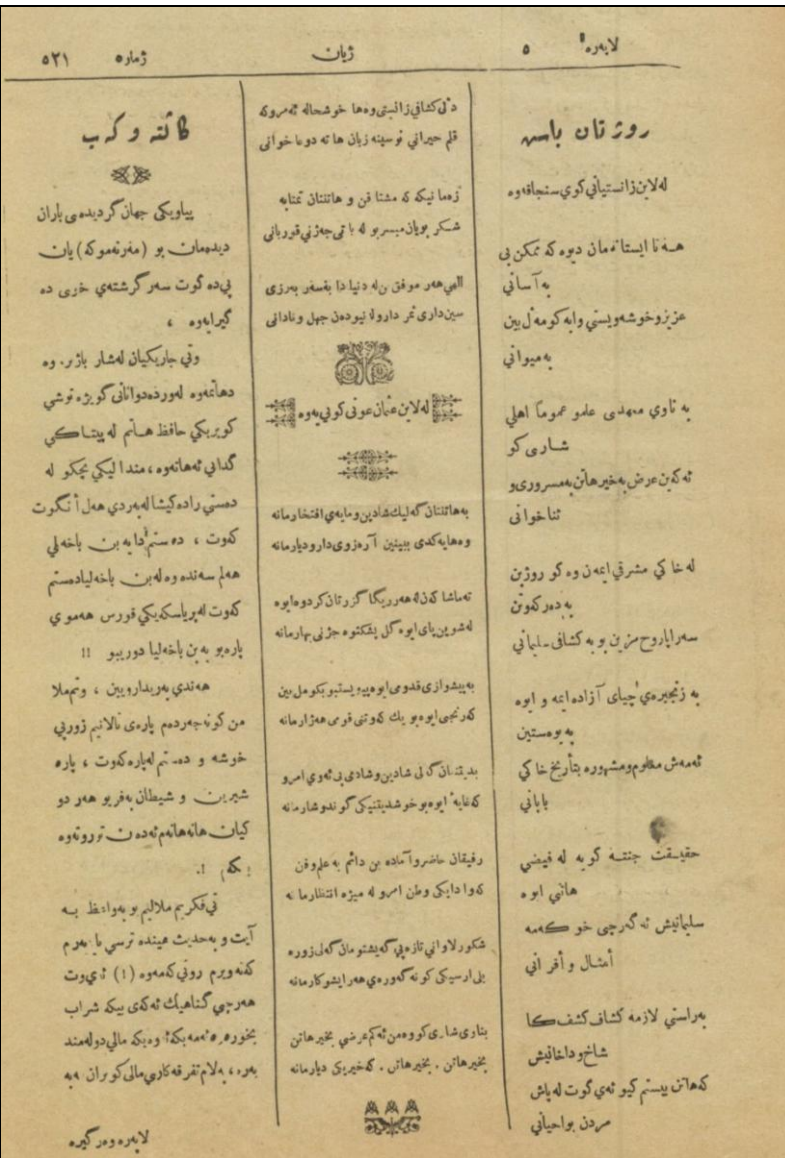 لاپەرە ٥
ژیان
ژمارە ٥٢١
روژتان باس
لەلاین زانستیانی کوي سنجاقەوە
هەتا ایستا نەمان دیوە کە ممکن بی
بەآسانی
عزیزو خوشەویستي وابەکومەل بین
بەمیوانی
بە ناوي مەهدی علمو عموماً اهلي
شاری کو
ئەکەین عرض بەخیرهاتن بەمسروری و
ثناخوانی
لەخاکي مشرقي ایمەن وەکو روژین
بەدەرکەوتن
سەراپاروح مزین بو بە کشافی سلیمانی
بە زنجیرەي چیای آزادە ایمە و ایوە
پەیوەستین
ئەمەش معلوم ومشهورە بتأریخ خاکي
بابانی
حقیقت جنتە گویە لە فیضی
هاتني ایوە
سلیمانیش ئەگەرچی خو کەمە
أمثال و أقرانی
بەراستي لازمە کشاف کشف کا
شاخ وداخانیش
کەهاتن بیستم کیو ئەی گوت لەپاش
مردن بواحیانی
دلی کشافی زانیتی وەها خوشحالە ئەمروکە
قلم حیرانی نوسینە زبان هاتە دوعاخوانی
زەمانیکە کە مشتاقن و هاتنتان تمنایە
شکر بویان میسربو لە باتی جەژنی قوربانی
الهي هەر موفق بن لە دنیادا بفسفر بەرزی
لەلاین عثمان عوني کویي یەوە
بەهاتنتان گەلیك شادین ومایەي افتخارمانە
وەهایەکدی ببینین آرەزوی دارودیارمانە
تەماشاکەن لە هەر ریگا گزرتان کردوە ایوە
لەشوین پای ایوە گل پشکتوە جژنی بهارمانە
بەپیشوازی قدومی ایوە پیویستبو بکومل بین
کەرنجی ایوە بو یك کەوتنی قومی هەژارمانە
بدیتنتان گەلی شادین وشادی بی ئەوی امرو
کەغایۀ ایوە بوخوشدیتنیکی گوندوشارمانە
رفیقان حاضروآمادە بن دائم بە علم وفن
کەوا دایکی وطن امرو لە میژە انتظارمانە
شکور لاوانی تازەپي گەیشتومان گەلی زورە
بلی ارسیکی کونە گەورەي هەرایشوکارمانە
بناوی شاری کووە من ئەکم عرضي بخیرهاتن
بخیرهاتن . بخیرهاتن . کەخیریکی دیارمانە
گالتە و گەپ
پیاویکی جهان گردیدەی باران
دیدەمان بو (مەرتەموکە) یان
پي دەگوت سەرگرشتەي خری دە
گیرایەوە ،
وتی جاریکیان لەشار باژیر. وە
دهاتمەوە لەوردەدوانانی گویژە توشی
کویریکی حافظ هاتم لە پیتاکی
گدانی ئەهاتەوە ، مندالیکی بچکو لە
دەستی رادەکیشا لەبەردی هەل أنگوت
کەوت ، دەستم دایە بن باخەلي
هەلم سەندەوە لەبن باخەلیا دەستم
کەوت لەپریاسکەیکی قورس هەموي
پارەبو بەبن باخەلیا دوریبو !!
هەندي بەریدارویین ، وتم ملا
من کونەجەردەم پارەی تالانیم زورپی
خوشە و دەستم لەپارەکەوت ، پارە
شیرین و شیطان بەفریو هەر دو
کیان هانەهانەم ئەدەن توروتەوە
بکە، !.
ئی فکریم ملالیم بو بەواعظ بە
آیت و بەحدیث هیندە ترسی یا بەرم
کەنەویرم روتی کەمەوە (!) ئەي وت
هەرچي گناهیك ئەکەی بیکە شراب
بخورە، ئەمە بکە! وە بکە مالی دولەمند
بەرە، بەلام تفرقەکاری مالی کویران مەبە
لاپەرە وەرگیرە